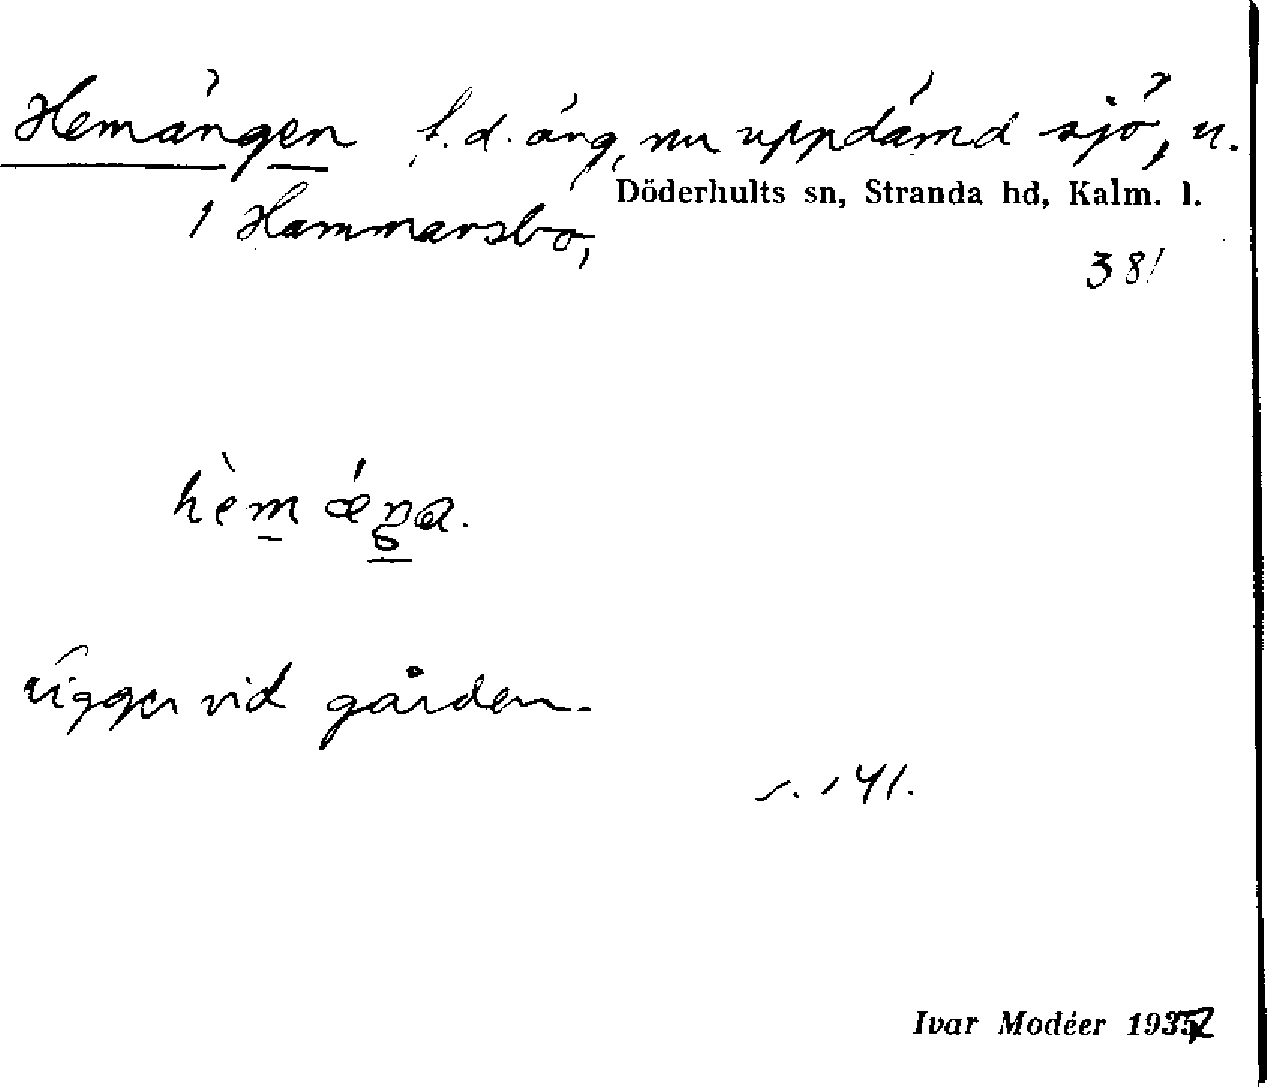 Hemängen f.d. äng, nu uppdämd sjö, u.
Döderhults sn, Stranda hd, Kalm. l.
1 Hammarsbo,
381
hèm ǽŋa.
Ligger vid gården.
s. 141.
Ivar Modéer 1937